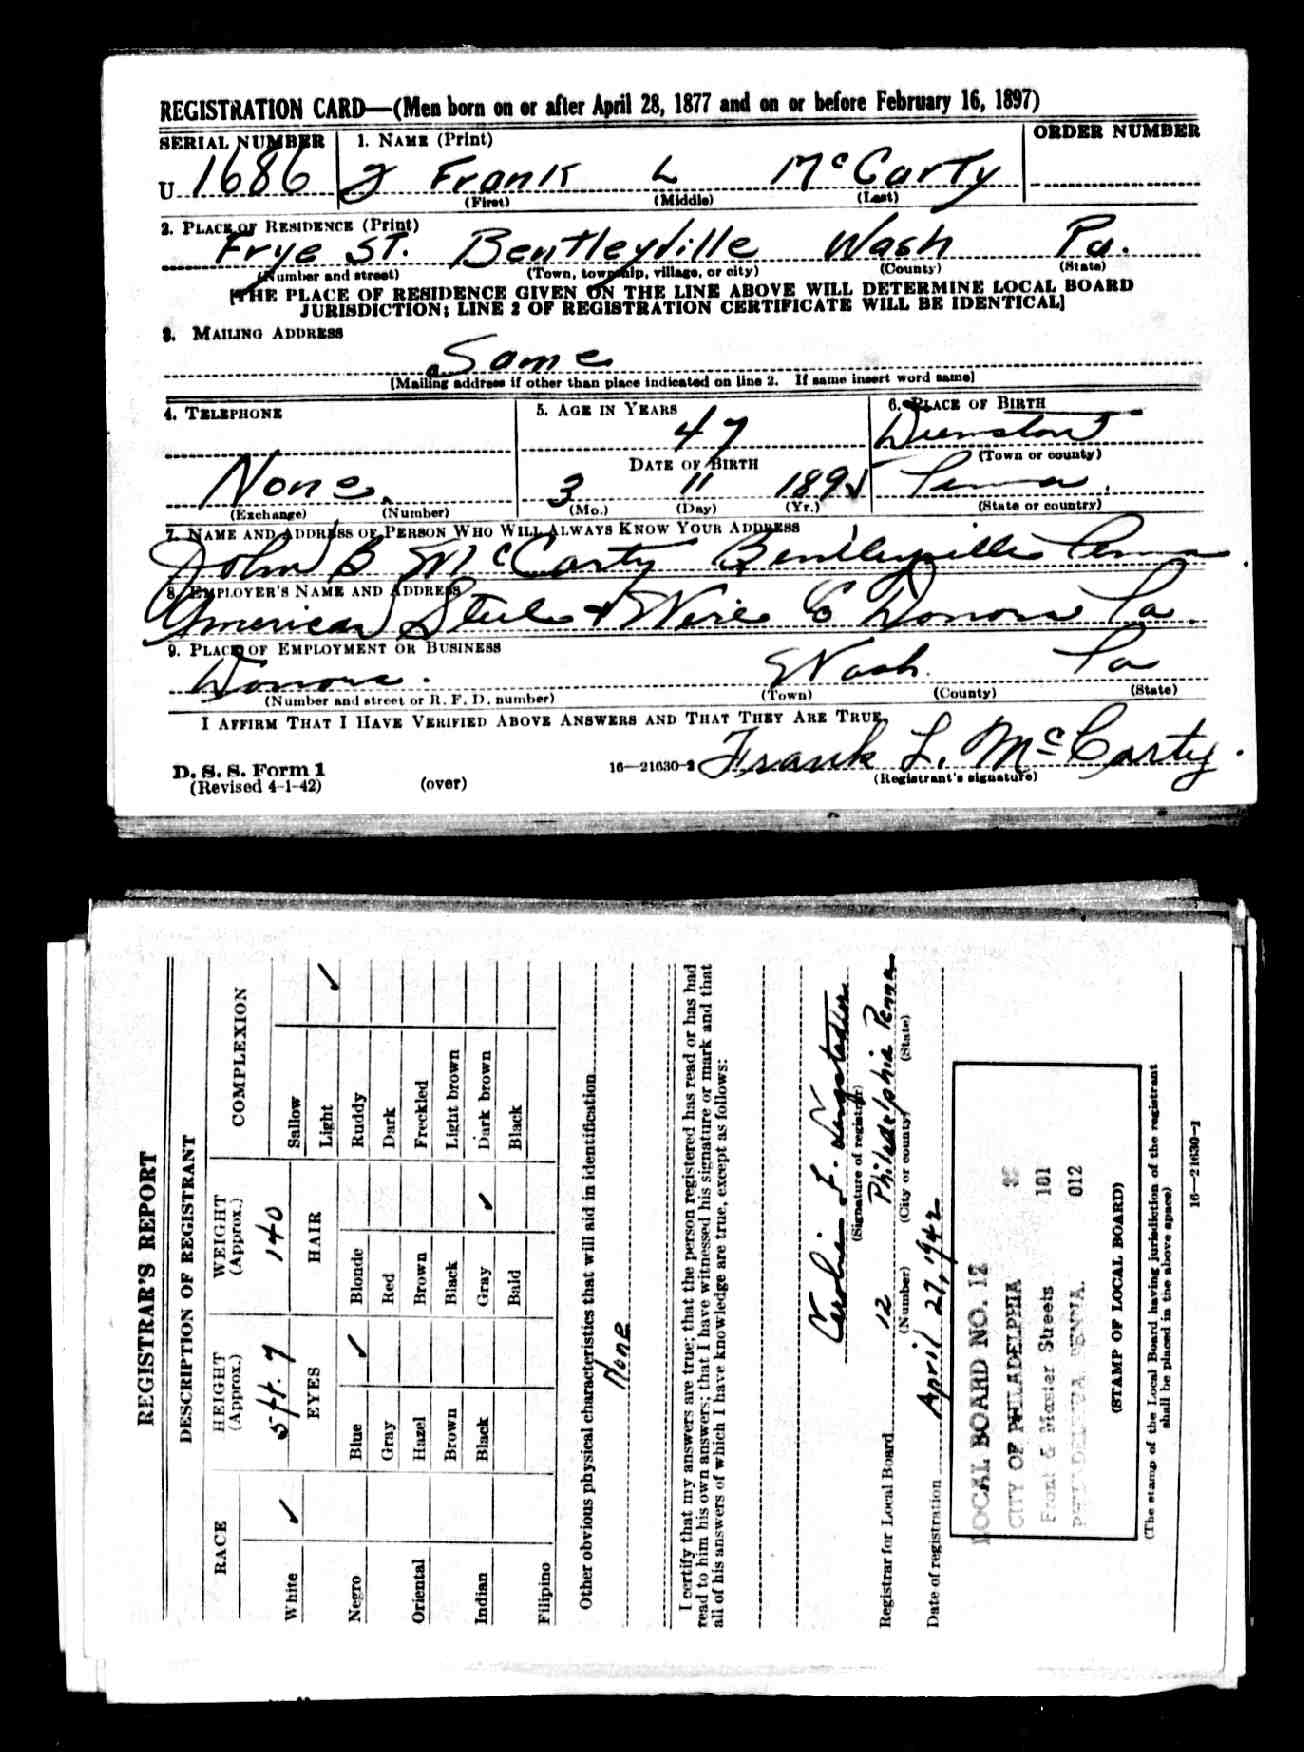 REGISTRATION CARD—(Men born on or after April 28, 1877 and on or before February 16, 1897)
SERIAL NUMBER 1. NAME (Print) ORDER NUMBER
U 1686 Frank L McCarty
(First) (Middle) (Last)
2. PLACE OF RESIDENCE (Print)
Frye ST. Bentleyville Wash Pa.
(Number and street) (Town, township, village, or city) (County) (State)
[THE PLACE OF RESIDENCE GIVEN ON THE LINE ABOVE WILL DETERMINE LOCAL BOARD
JURISDICTION; LINE 2 OF REGISTRATION CERTIFICATE WILL BE IDENTICAL]
3. MAILING ADDRESS
Same
[Mailing address if other than place indicated on line 2. If same insert word same]
4. TELEPHONE 5. AGE IN YEARS 6. PLACE OF BIRTH
47
DATE OF BIRTH (Town or county)
None. 3 11 1895 Penna.
(Exchange) (Number) (Mo.) (Day) (Yr.) (State or country)
7. NAME AND ADDRESS OF PERSON WHO WILL ALWAYS KNOW YOUR ADDRESS
John B McCarty Bentleyville Penna
8. EMPLOYER'S NAME AND ADDRESS
American Steel & Wire Co Donora Pa.
9. PLACE OF EMPLOYMENT OR BUSINESS
Donora. Wash. Pa
(Number and street or R. F. D. number) (Town) (County) (State)
I AFFIRM THAT I HAVE VERIFIED ABOVE ANSWERS AND THAT THEY ARE TRUE.
Frank L. McCarty.
D. S. S. Form 1 16—21630-2 (Registrant's signature)
(Revised 4-1-42) (over)
REGISTRAR'S REPORT
DESCRIPTION OF REGISTRANT
RACE HEIGHT (Approx.) WEIGHT (Approx.) COMPLEXION
White ✓ 5 ft. 7 140 Sallow
EYES HAIR Light ✓
Negro Blue ✓ Blonde Ruddy
Gray Red Dark
Oriental Hazel Brown Freckled
Brown Black Light brown
Indian Black Gray ✓ Dark brown
Bald Black
Filipino
Other obvious physical characteristics that will aid in identification
None
I certify that my answers are true; that the person registered has read or has had
read to him his own answers; that I have witnessed his signature or mark and that
all of his answers of which I have knowledge are true, except as follows:
(Signature of registrar)
Registrar for Local Board 12 Philadelphia Penna
(Number) (City or county) (State)
Date of registration April 27, 1942
LOCAL BOARD NO. 12
CITY OF PHILADELPHIA 101
Front & Master Streets 012
PHILADELPHIA PENNA.
(STAMP OF LOCAL BOARD)
(The stamp of the Local Board having jurisdiction of the registrant
shall be placed in the above space)
16—21630-1